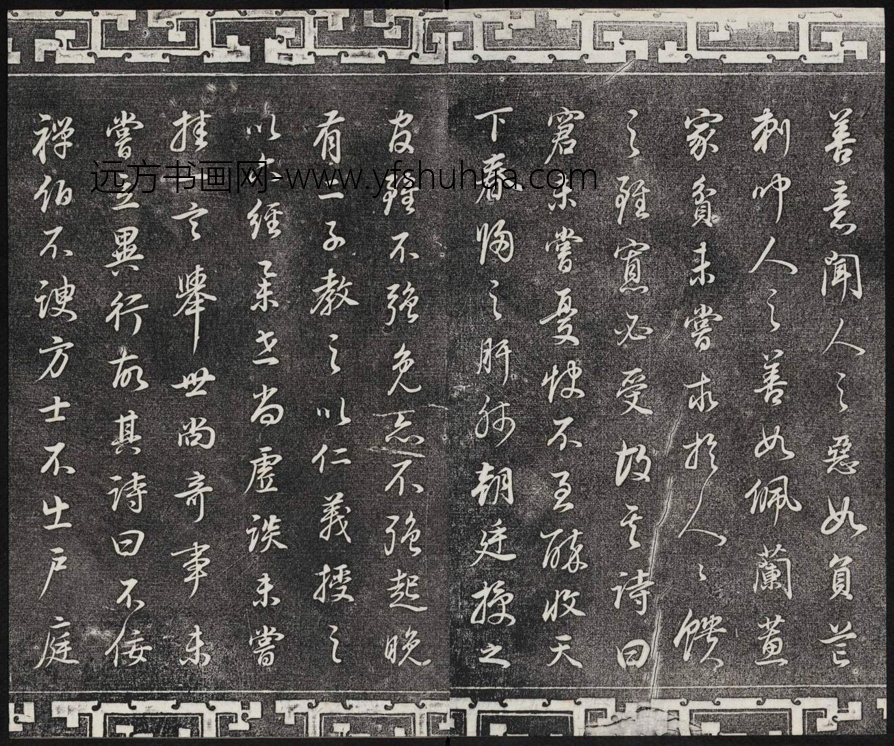 善意聞人之惡如負芒
刺聞人之善如佩蘭蕙
家貧未嘗求於人々饋
之雖寡必受故其詩曰
窘未嘗憂飲不至醉收天
下春歸之肝肺朝廷授之
官雖不強免亦不強起晚
有二子教之以仁義授之
以六經舉世尚虛談未嘗
挂一言舉世尚奇事未
嘗立異行故其詩曰不佞
禪伯不諛方士不出戶庭
远方书画网-www.yfshuhua.com